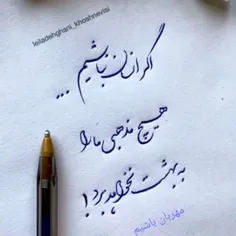 leiladehghani_khoshnevisi
اگر انسان نباشیم ...
هیچ مذهبی ما را
به بهشت نخواهد برد!
مهربان باشیم